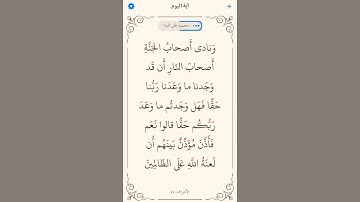 آية اليوم
وَنادى أَصحابُ الجَنَّةِ
أَصحابَ النّارِ أَن قَد
وَجَدنا ما وَعَدَنا رَبُّنا
حَقًّا فَهَل وَجَدتُم ما وَعَدَ
رَبُّكُم حَقًّا قالوا نَعَم
فَأَذَّنَ مُؤَذِّنٌ بَينَهُم أَن
لَعنَةُ اللَّهِ عَلَى الظّالِمينَ